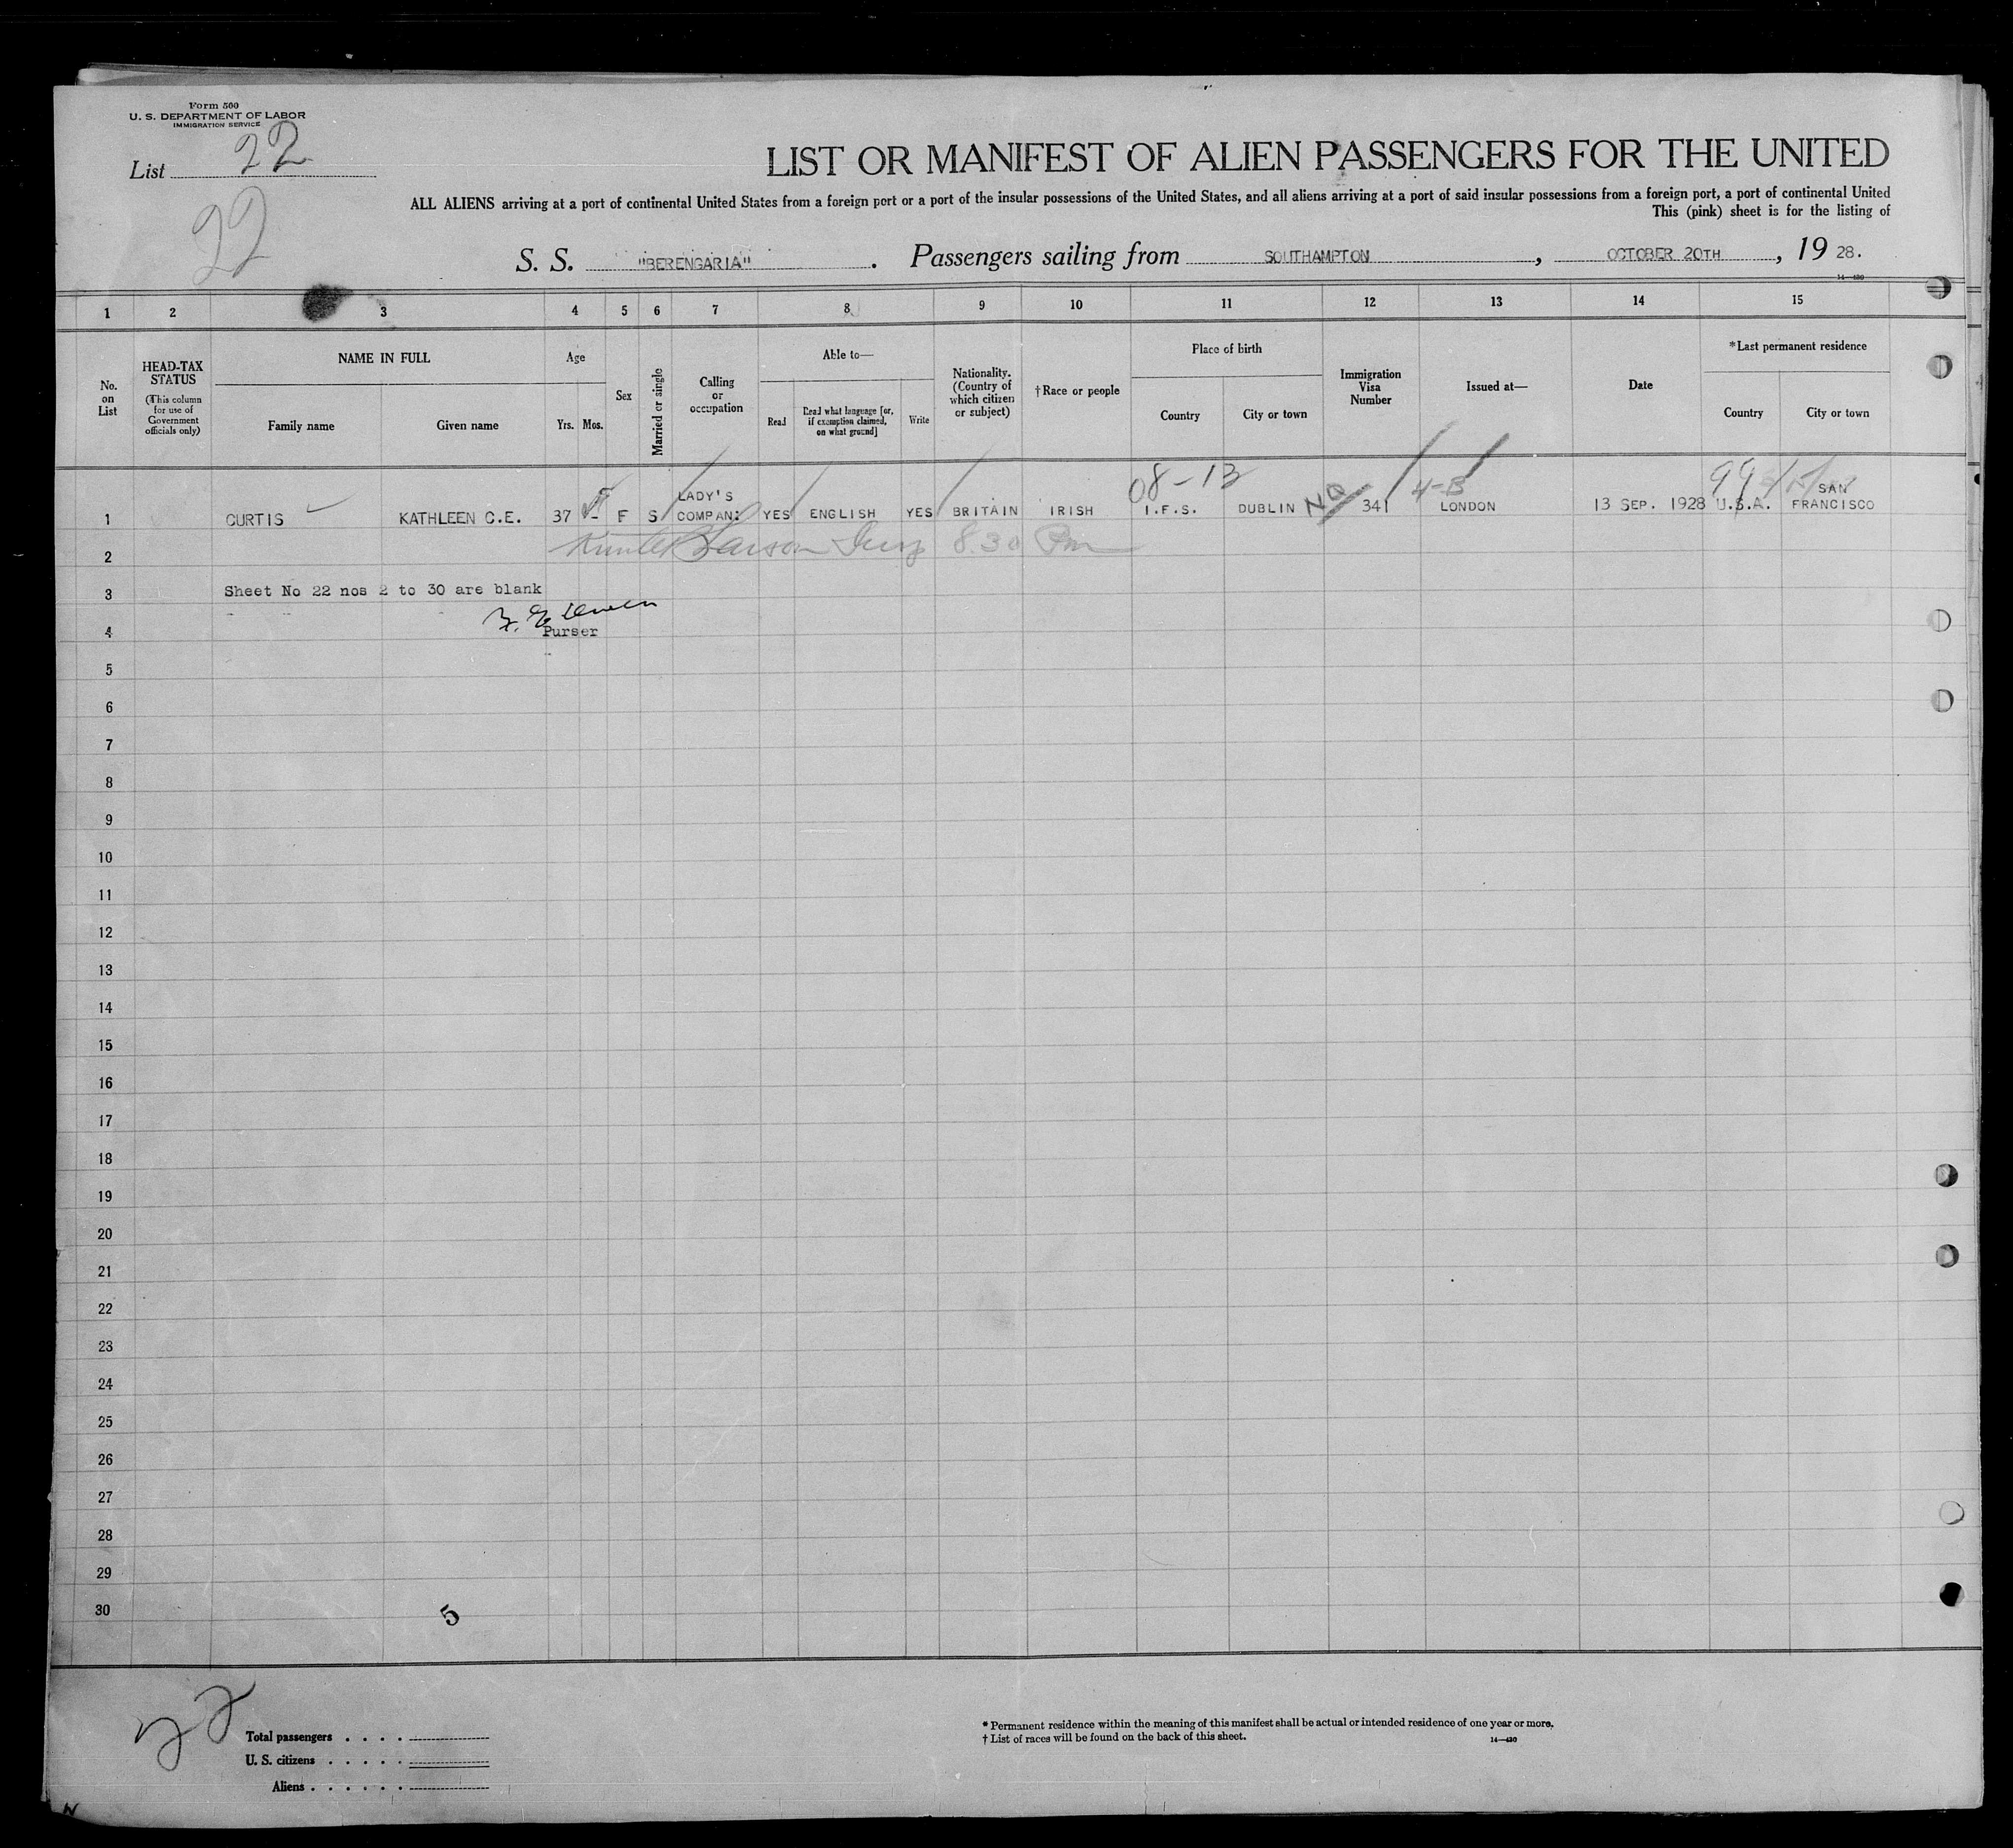 Form 500
U. S. DEPARTMENT OF LABOR
IMMIGRATION SERVICE
List 22
22
LIST OR MANIFEST OF ALIEN PASSENGERS FOR THE UNITED
ALL ALIENS arriving at a port of continental United States from a foreign port or a port of the insular possessions of the United States, and all aliens arriving at a port of said insular possessions from a foreign port, a port of continental United
This (pink) sheet is for the listing of
S. S. "BERENGARIA". Passengers sailing from SOUTHAMPTON, OCTOBER 20TH, 19 28.
14—430
1 2 3 4 5 6 7 8 9 10 11 12 13 14 15
No. on List
HEAD-TAX STATUS
(This column for use of Government officials only)
NAME IN FULL
Family name Given name
Age
Yrs. Mos.
Sex
Married or single
Calling or occupation
Able to—
Read
Read what language [or, if exemption claimed, on what ground]
Write
Nationality. (Country of which citizen or subject)
†Race or people
Place of birth
Country City or town
Immigration Visa Number
Issued at—
Date
*Last permanent residence
Country City or town
08-13 4-B 99
1 CURTIS KATHLEEN C.E. 37 - F S LADY'S COMPAN: YES ENGLISH YES BRITAIN IRISH I.F.S. DUBLIN NQ 341 LONDON 13 SEP. 1928 U.S.A. SAN FRANCISCO
2 8.30 Pm
3 Sheet No 22 nos 2 to 30 are blank
4 Purser
5
6
7
8
9
10
11
12
13
14
15
16
17
18
19
20
21
22
23
24
25
26
27
28
29
30
5
22
Total passengers
U. S. citizens
Aliens
* Permanent residence within the meaning of this manifest shall be actual or intended residence of one year or more.
† List of races will be found on the back of this sheet.
14—430